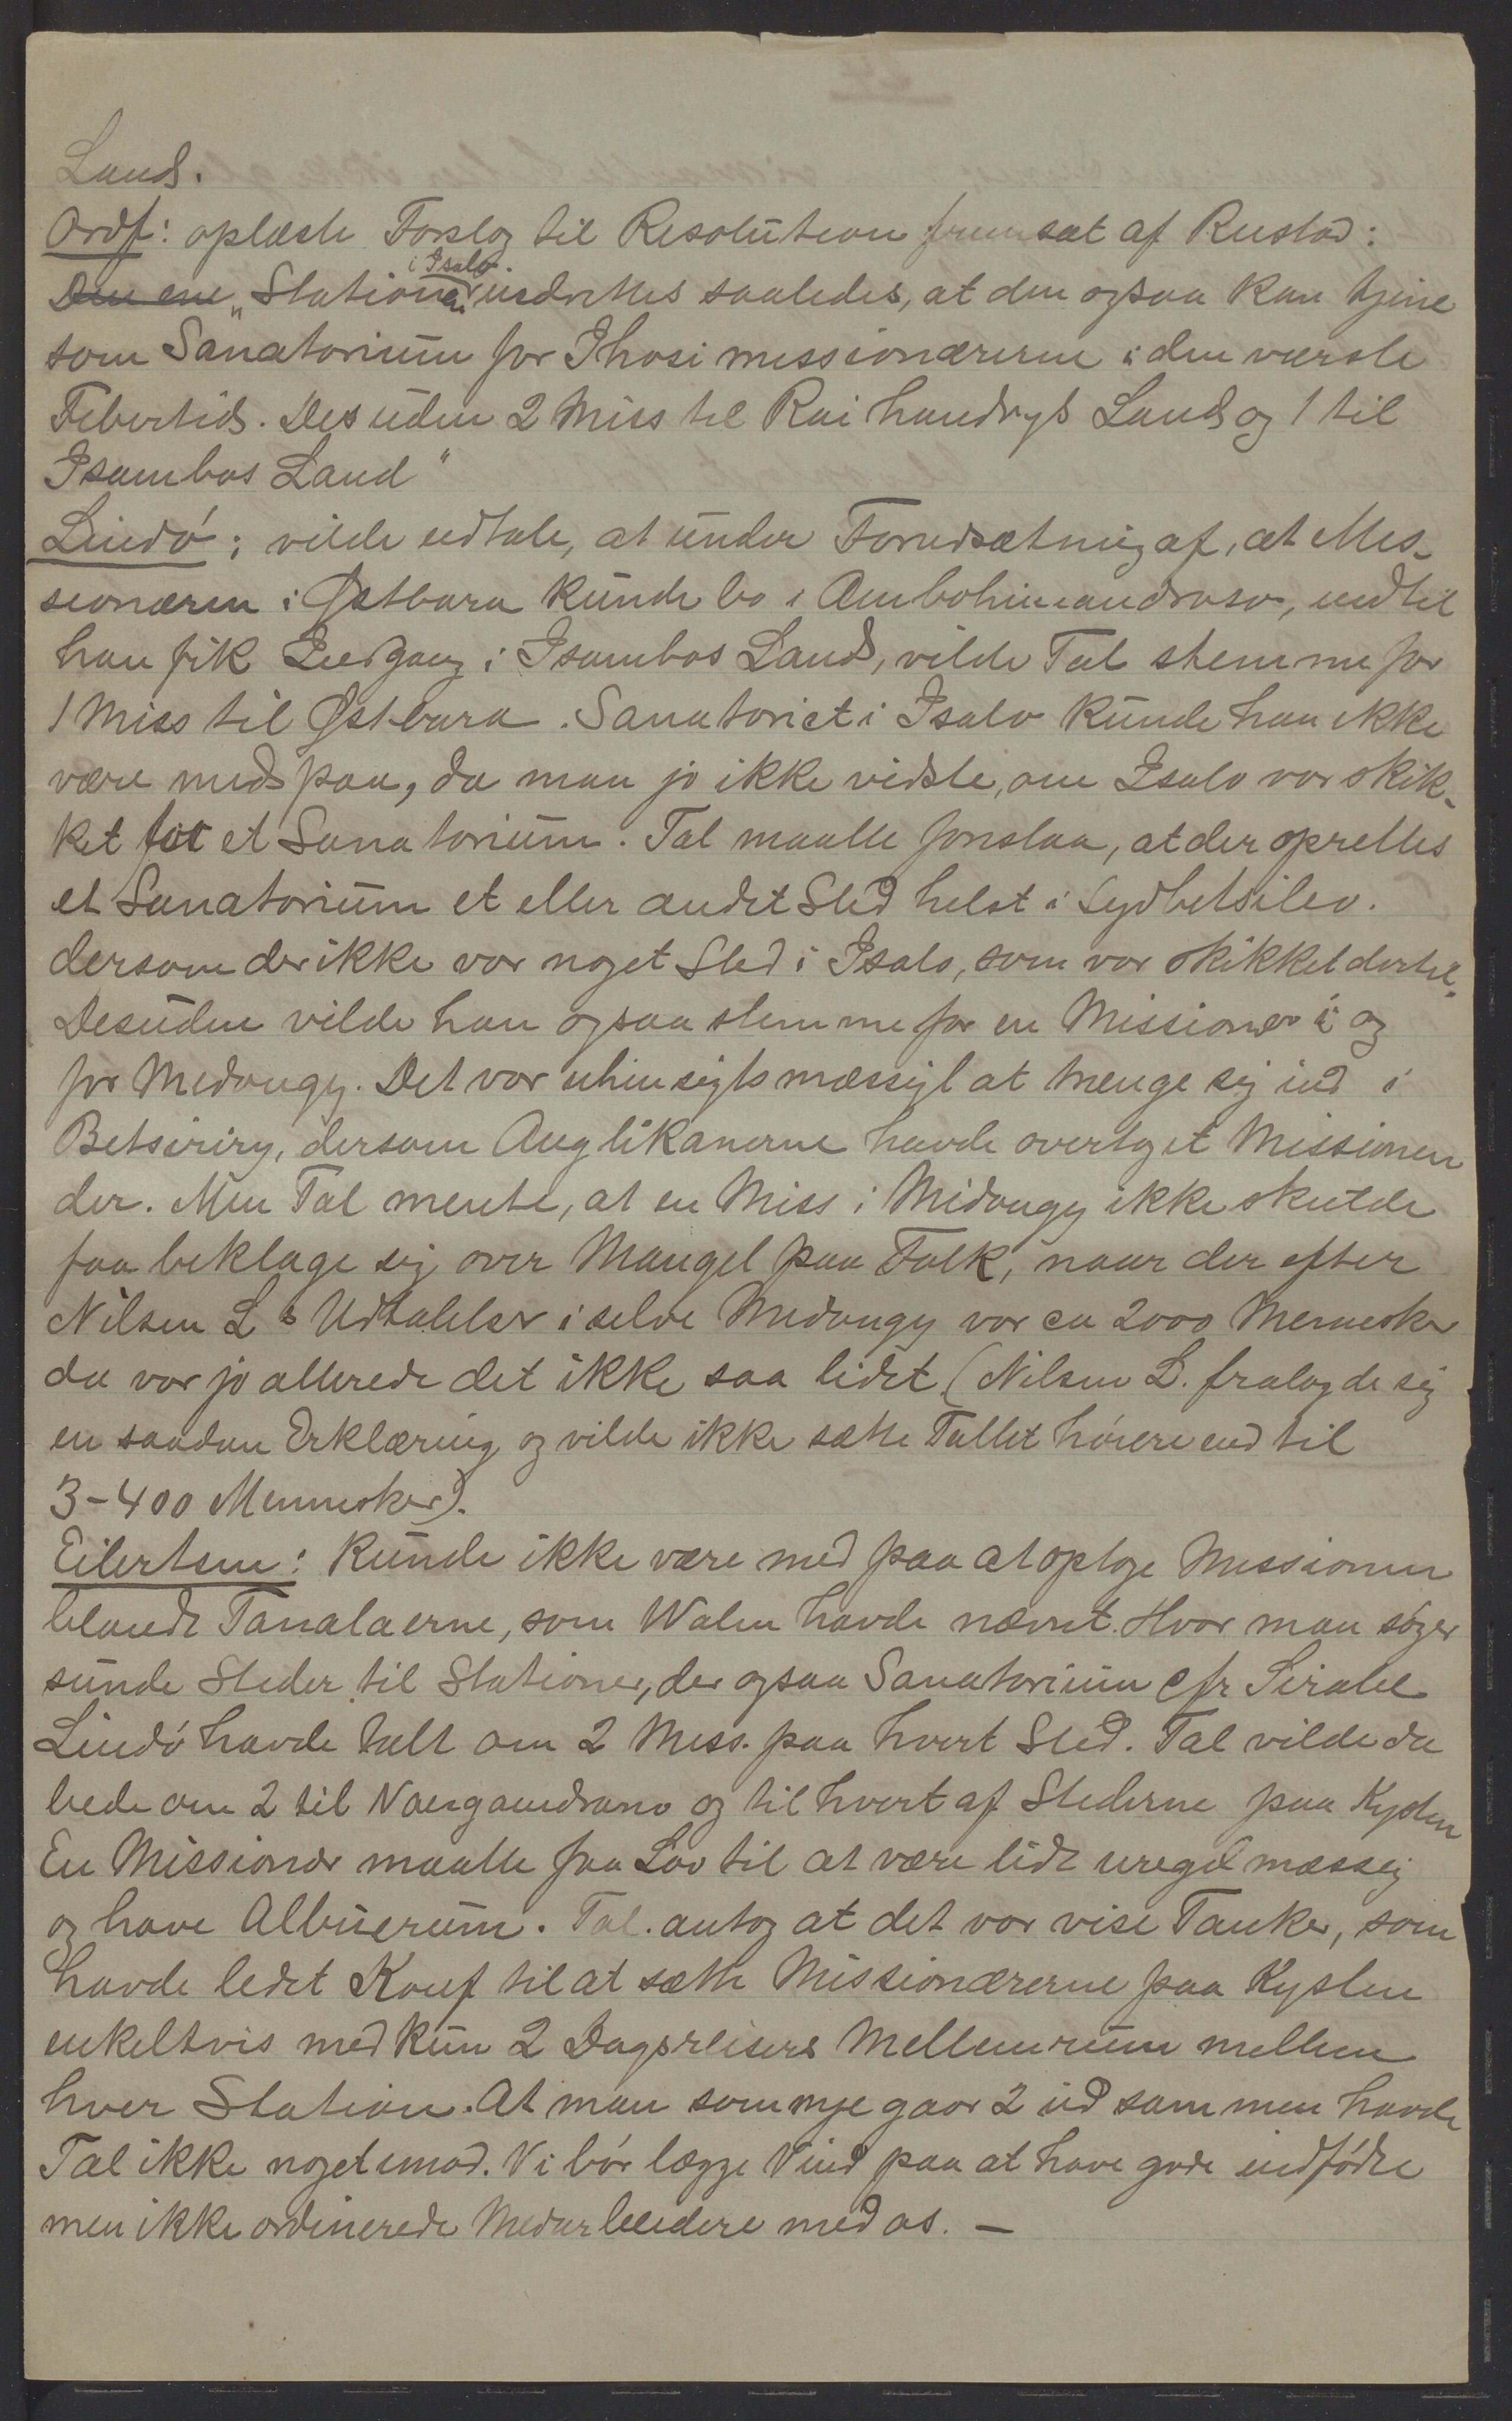 Land.
Ordf: oplæste Forslag til Resolution fremsat af Rustad:
Den ene „Stationen i Isalo indrettes saaledes, at den ogsaa kan tjene
som Sanatorium for Ihosimissionærerne i den værste
Febertid. Desuden 2 Miss til Raihandrys Land og 1 til
Isambos Land"
Lindø: vilde udtale, at under Forudsætning af, at Mis-
sionæren i Østbara kunde bo i Ambohimandroso, indtil
han fik Indgang i Isambos Land, vilde Tal stemme for
1 Miss til Østbara. Sanatoriet i Isalo kunde han ikke
være med paa, da man jo ikke vidste, om Isalo var skik-
ket for et Sanatorium. Tal maatte foreslaa, at der oprettes
et Sanatorium et eller andet Sted helst i Sydbetsileo.
dersom der ikke var noget Sted i Isalo, som var skikket dertil.
Desuden vilde han ogsaa stemme for en Missionær i og
for Midongy. Det var uhensigtsmæssigt at trænge sig ind i
Betsiriry, dersom Anglikanerne havde overtaget Missionen
der. Men Tal mente, at en Miss i Midongy ikke skulde
faa beklage sig over Mangel paa Folk, naar der efter
Nilsen L s Udtalelser i selve Midongy var ca 2000 Mennesker
da var jo allerede det ikke saa lidet (Nilsen L. fralagde sig
en saadan Erklæring og vilde ikke sætte Tallet høiere end til
3-400 Mennesker).
Eilertsen: Kunde ikke være med paa at optage Missionen
blandt Tanalaerne, som Walen havde nævnt. Hvor man søger
sunde Steder til Stationer, der ogsaa Sanatorium cfr Sirabe
Lindø havde talt om 2 Miss. paa hvert Sted. Tal vilde da
bede om 2 til Vangaindrano og til hvert af Stederne paa Kysten
En Missionær maatte faa Lov til at være lidt uregelmæssig
og have Albuerum. Tal. antog at det var vise Tanker, som
havde ledet Konf til at sætte Missionærerne paa Kysten
enkeltvis med kun 2 Dagsreisers Mellemrum mellem
hver Station. At man som nye gaar 2 ud sammen havde
Tal ikke noget imod. Vi bør lægge Vind paa at have gode indfødte
men ikke ordinerede Medarbeidere med os. —